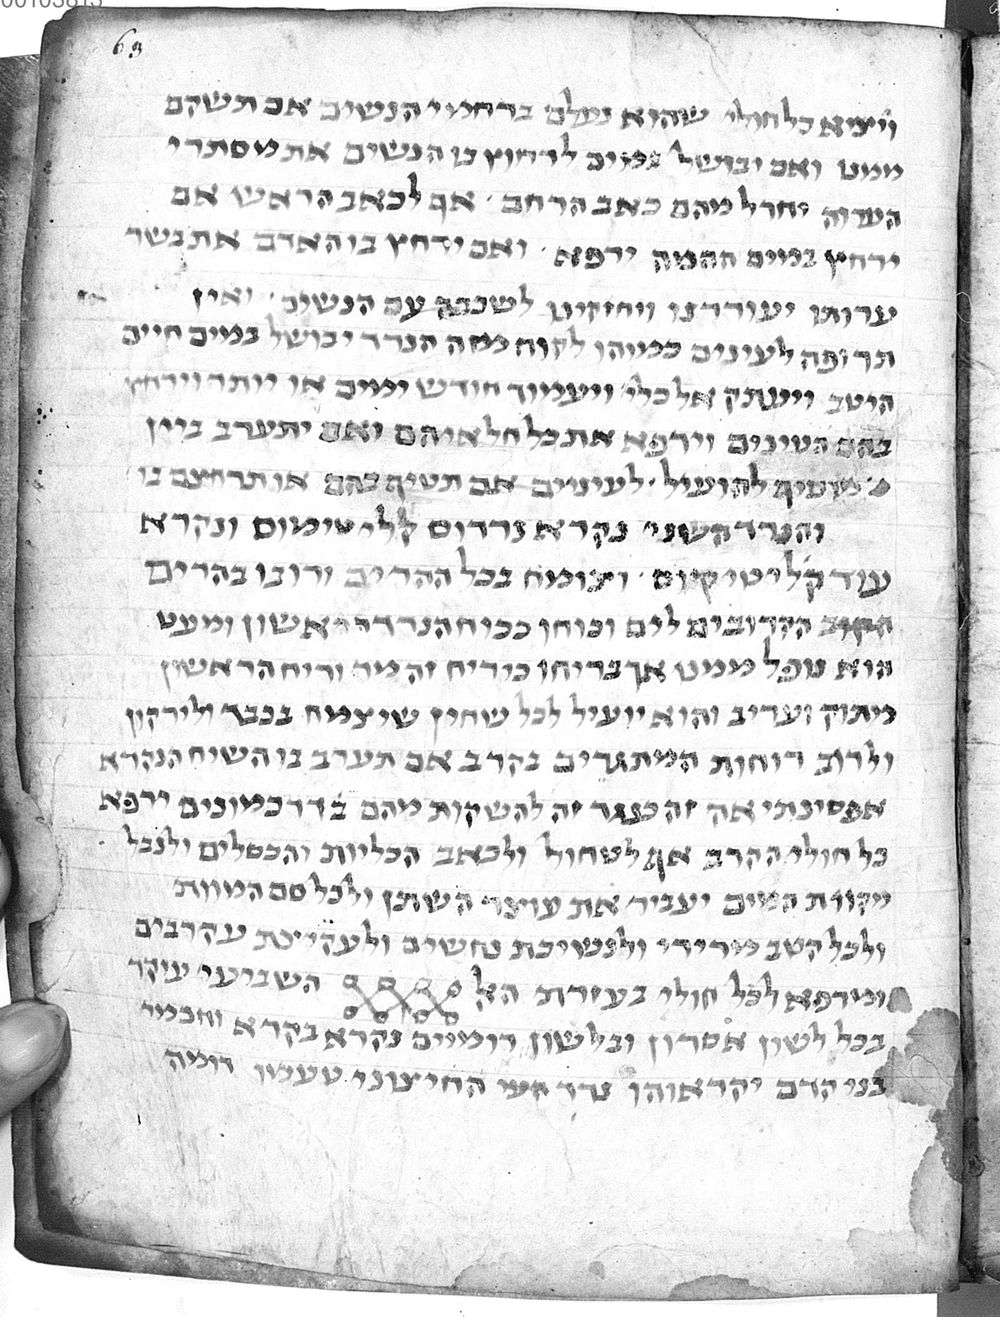 63
ויציא כל חולי שהוא נעלם ברחמי הנשים אם תשקם
ממנו ואם יבושל במים לרחוץ בו הנשים את מסתרי
הערוה יחדל מהם כאב הרחם אף לכאב הראש אם
ירחץ במים החמה ירפא ואם ירחץ בו האדם את בשר
ערותו יעוררנו ויחזקנו לשכבה עם הנשים ואין
תרופה לעינים כמוהו לקוח מזה הנרד יבושל במים חיים
היטב ויעתק אל כלי ויעמוד חודש ימים או יותר וירחץ
בהם העינים וירפא את כל חלאיהם ואם יתערב ביין
מוסיף להועיל לעינים אם תטיף בהם או תרחצם בו
והנרד השני נקרא נרדוס קלי טימוס ונקרא
עוד קליטיקוס וצומח בכל ההרים ורובו בהרים
הקרובים לים וכוחו ככוח הנרד הראשון ומעט
הוא נופל ממנו אך בריחו כי ריח זה מר וריח הראשון
מתוק וערב והוא יועיל לכל שחין שיצמח בכבד ולירקון
ולרוב רוחות המתגרים בקרב אם תערב בו השיח הנקרא
אפסינתי אך זה כנגד זה להשקות מהם בדרכמונים ירפא
כל חולי הקרב אף לטחול ולכאב הכליות והכסלים ולנבל
מקוות המים יעביר את עוצר השתן ולכל סם המוות
ולכל קטב מרירי ולנשיכת נחשים ולעקיצת עקרבים
ומירפא לכל חולי בעזרת האל השביעי עיקר
בכל לשון אסרון ובלשון רומיים נקרא בקרא וחכמי
בני קדם יקראוהו נרד חיצוני טעמו דומה